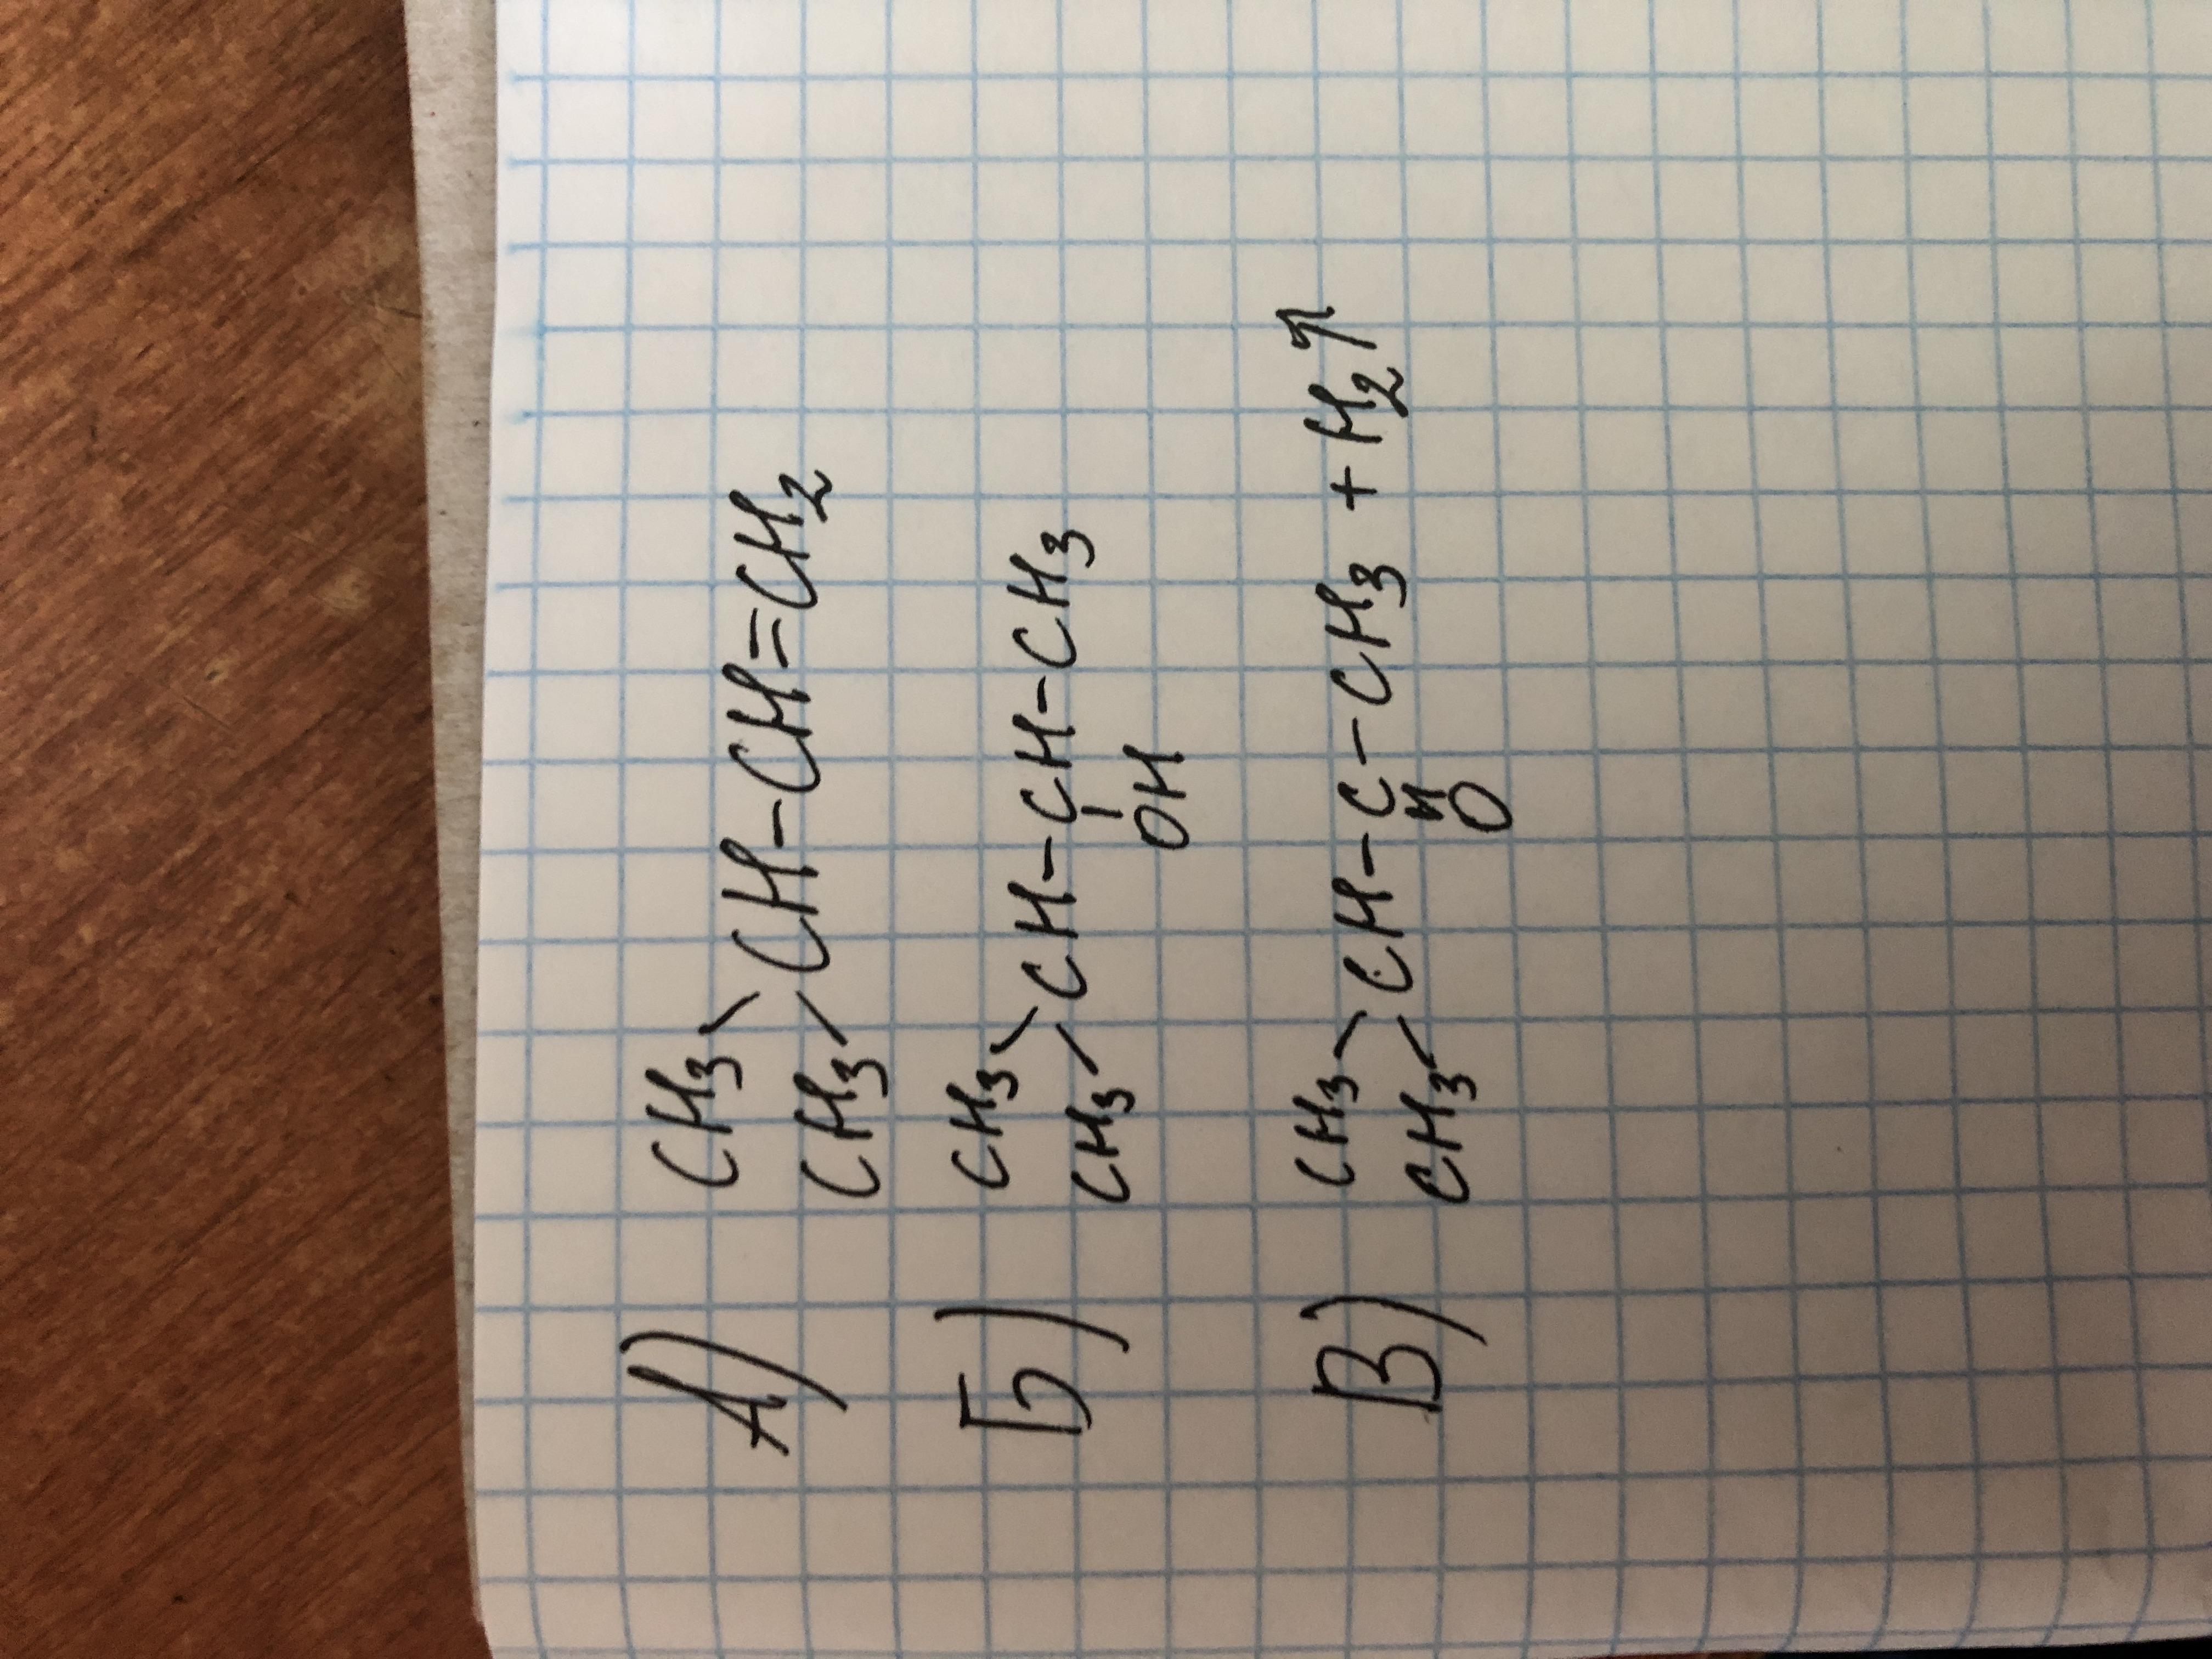 А) CH3 \ CH3 / CH-CH=CH2
Б) CH3 \ CH3 / CH-CH-CH3
OH
В) CH3 \ CH3 / CH-C-CH3 + H2↑
O